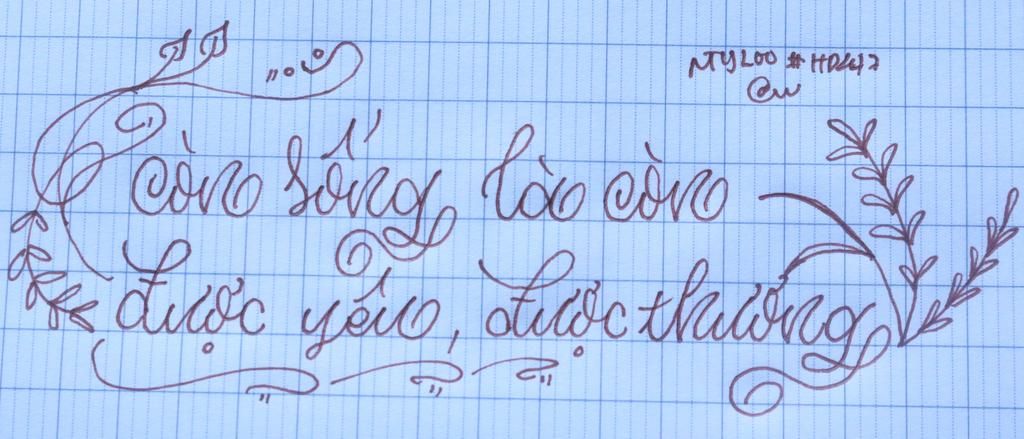 còn sống là còn
được yêu, được thương